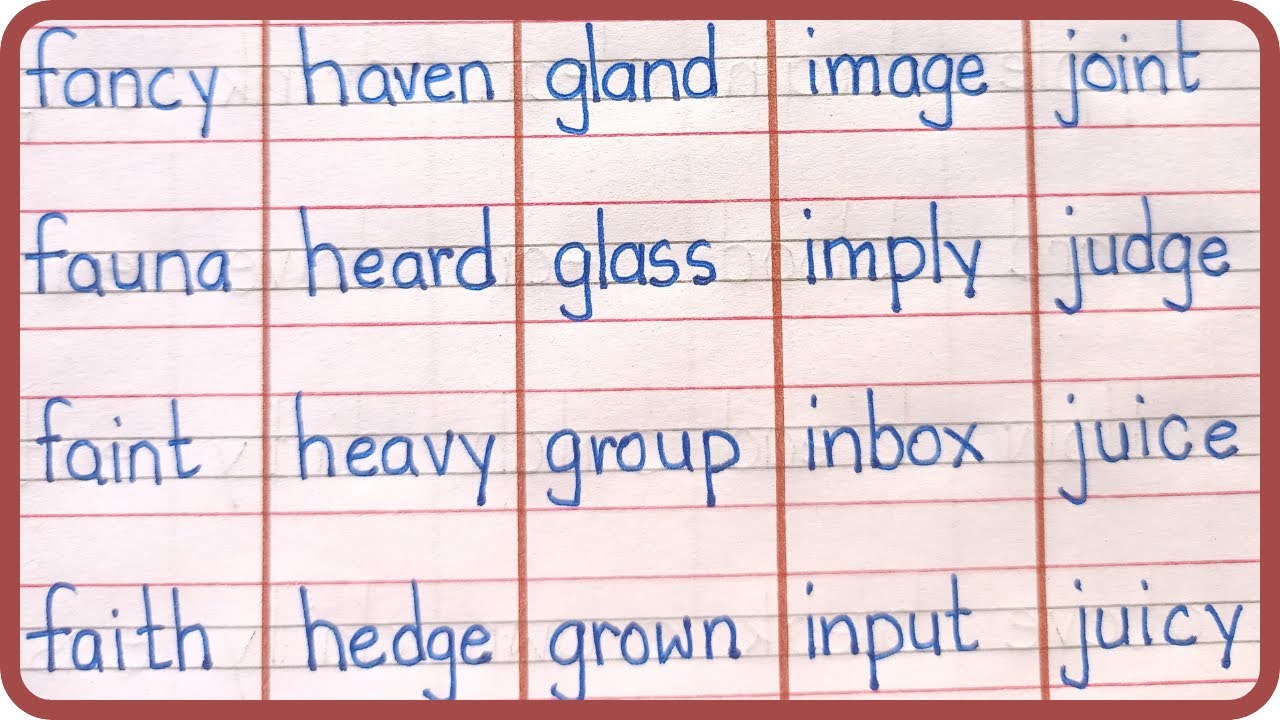 fancy haven gland image joint
fauna heard glass imply judge
faint heavy group inbox juice
faith hedge grown input juicy